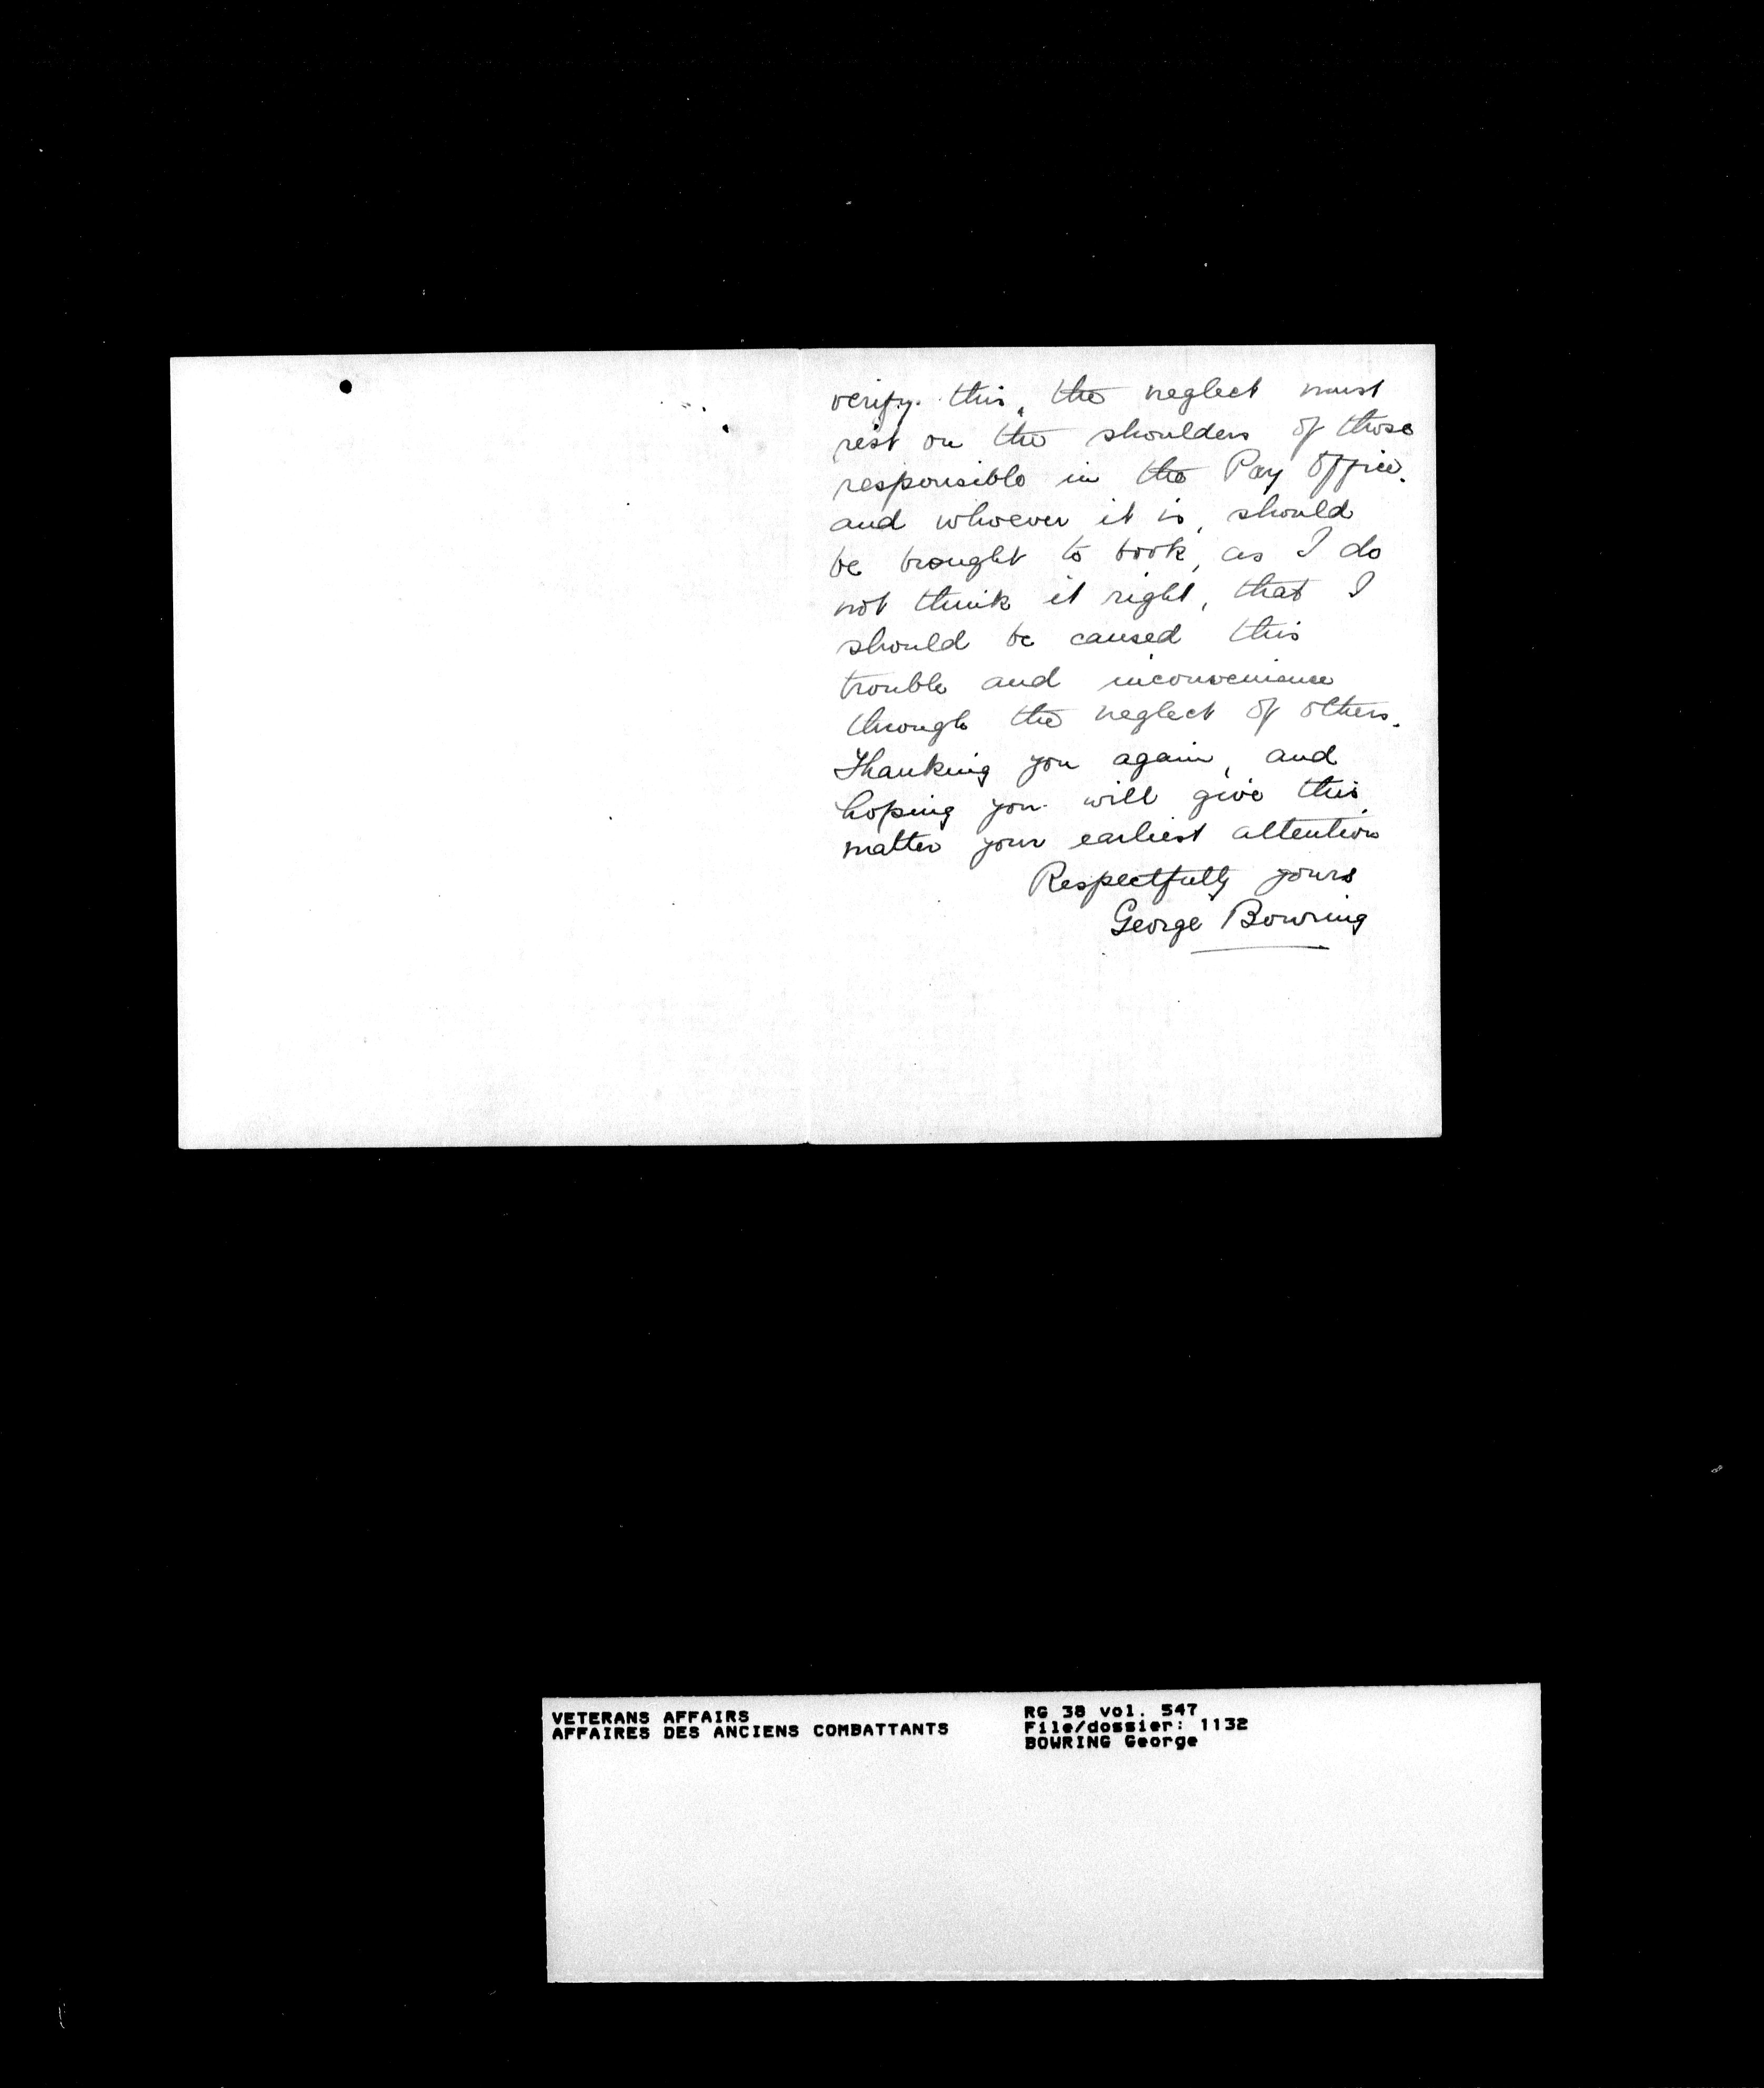 verify. this, the neglect must
rest on the shoulders of those
responsible in the Pay Office.
and whoever it is, should
be brought to book, as I do
not think it right, that I
should be caused this
trouble and inconvenience
through the neglect of others.
Thanking you again, and
hoping you will give this
matter your earliest attention
Respectfully yours
George Bowring
VETERANS AFFAIRS
AFFAIRES DES ANCIENS COMBATTANTS
RG 38 vol. 547
File/dossier: 1132
BOWRING George